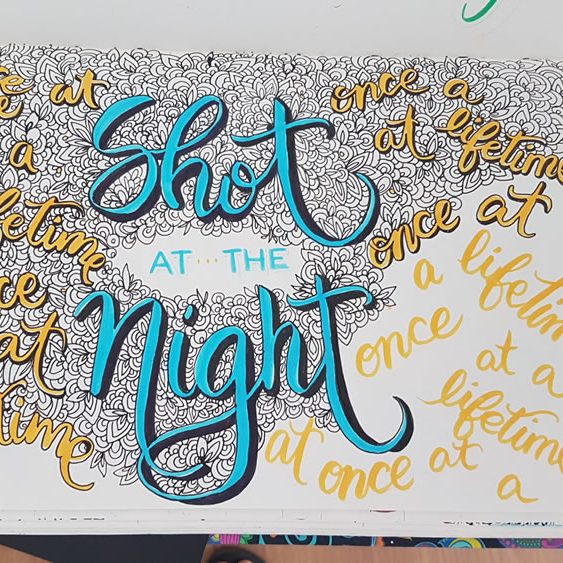 at
a
fetime
ce
at
time
Shot
AT···THE
Night
once a
at lifetime
once at
a lifetime
once
at a
lifetime
at once at
a